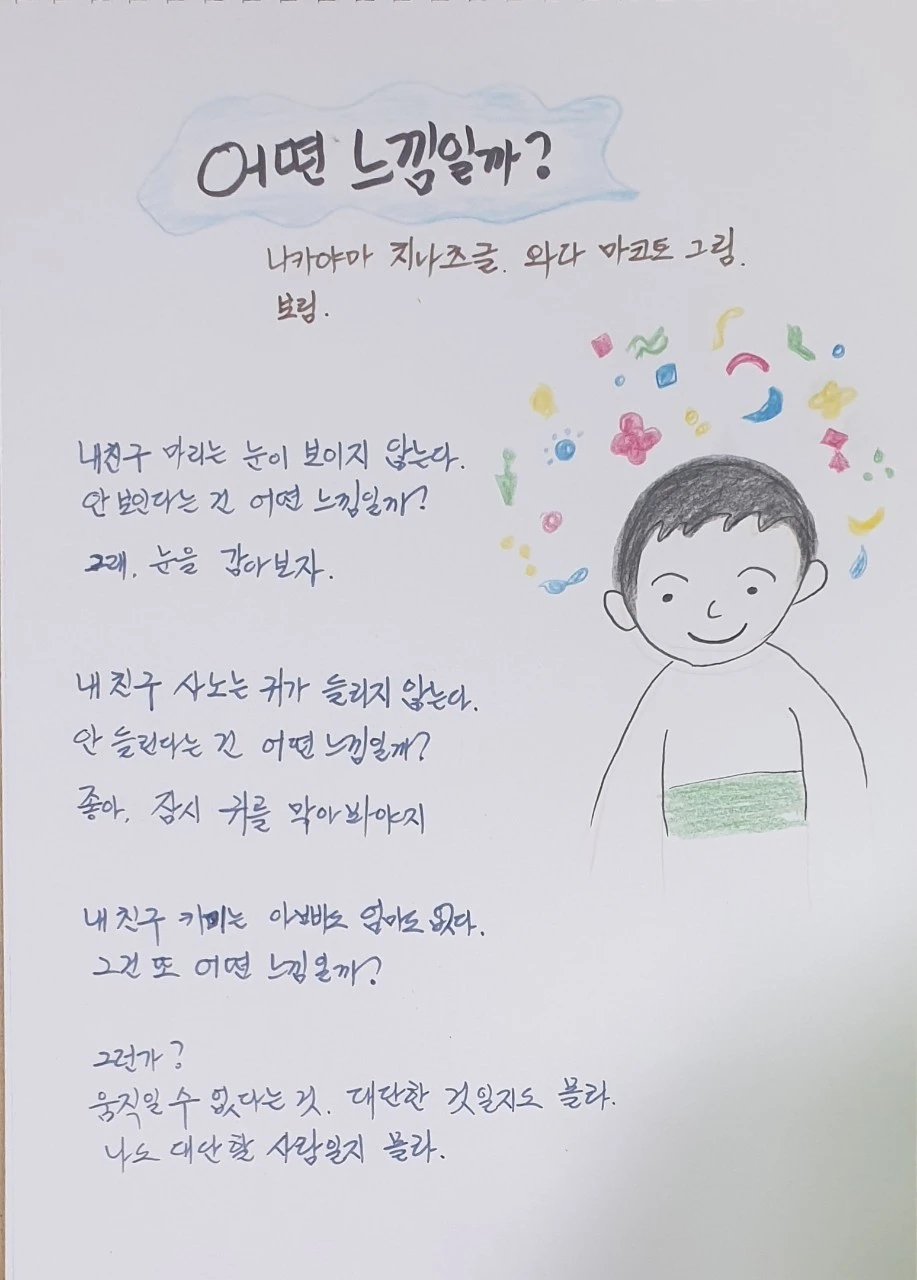 어떤 느낌일까?
나카야마 치나츠글. 와다 마코토 그림.
보림.
내친구 마리는 눈이 보이지 않는다.
안 보인다는 건 어떤 느낌일까?
그래. 눈을 감아보자.
내 친구 사노는 귀가 들리지 않는다.
안 들린다는 건 어떤 느낌일까?
좋아. 잠시 귀를 막아봐야지
내 친구 키미는 아빠도 엄마도 없다.
그건 또 어떤 느낌일까?
그런가?
움직일 수 없다는 것. 대단한 것일지도 몰라.
나도 대단할 사람일지 몰라.